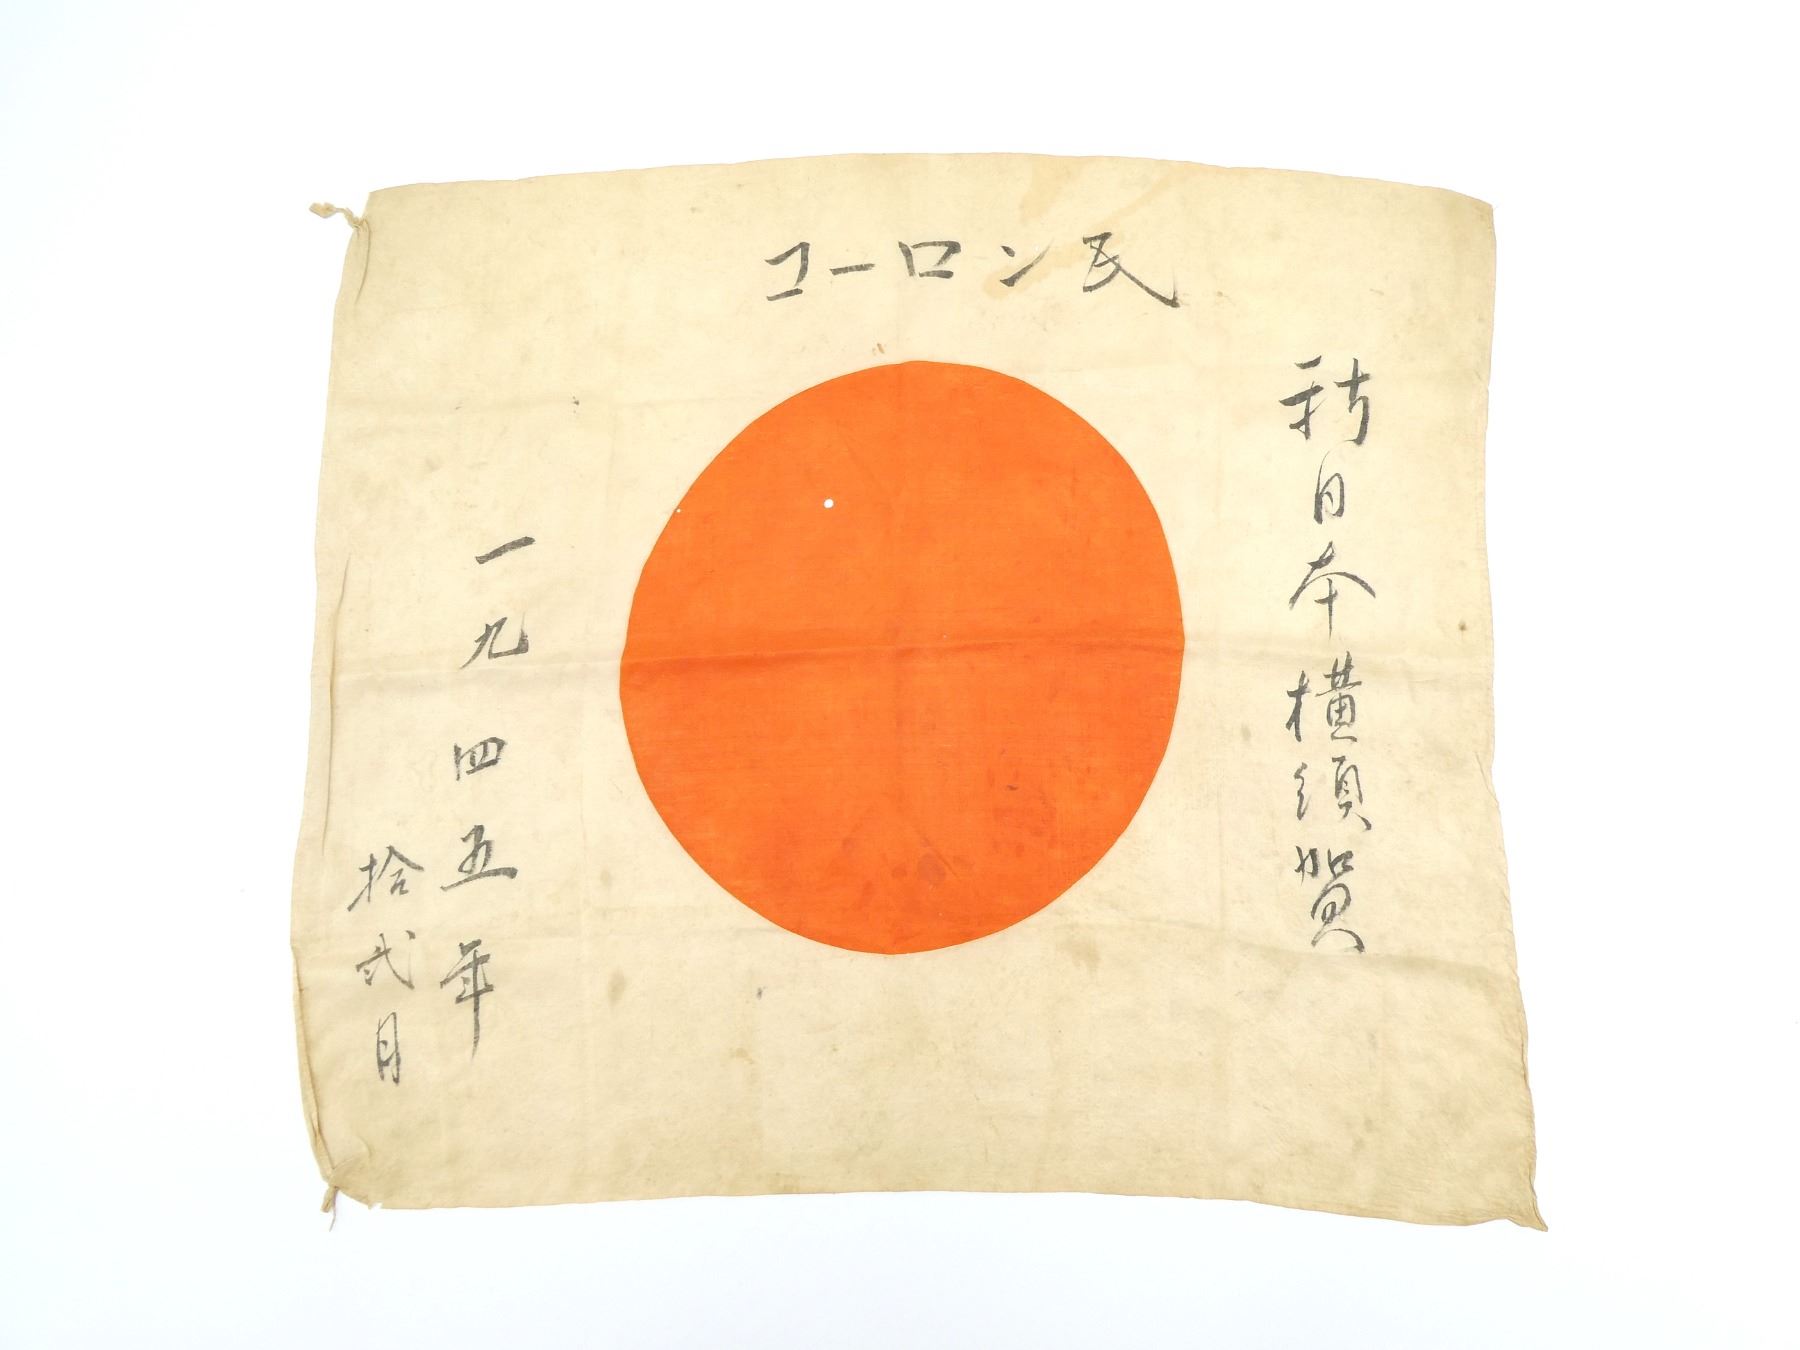 コーロン氏
新日本横須賀
一九四五年
拾弐月